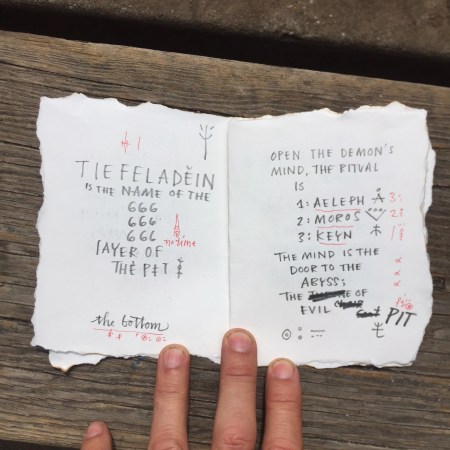 TIEFELADĔIN
IS THE NAME OF THE
666
666
666
no time
LAYER OF
THE PIT
the bottom
OPEN THE DEMON'S
MIND, THE RITUAL
IS
1: AELEPH 3:
2: MOROS 2:
3: KEYN 1:
THE MIND IS THE
DOOR TO THE
ABYSS;
THE OF
EVIL
PIT